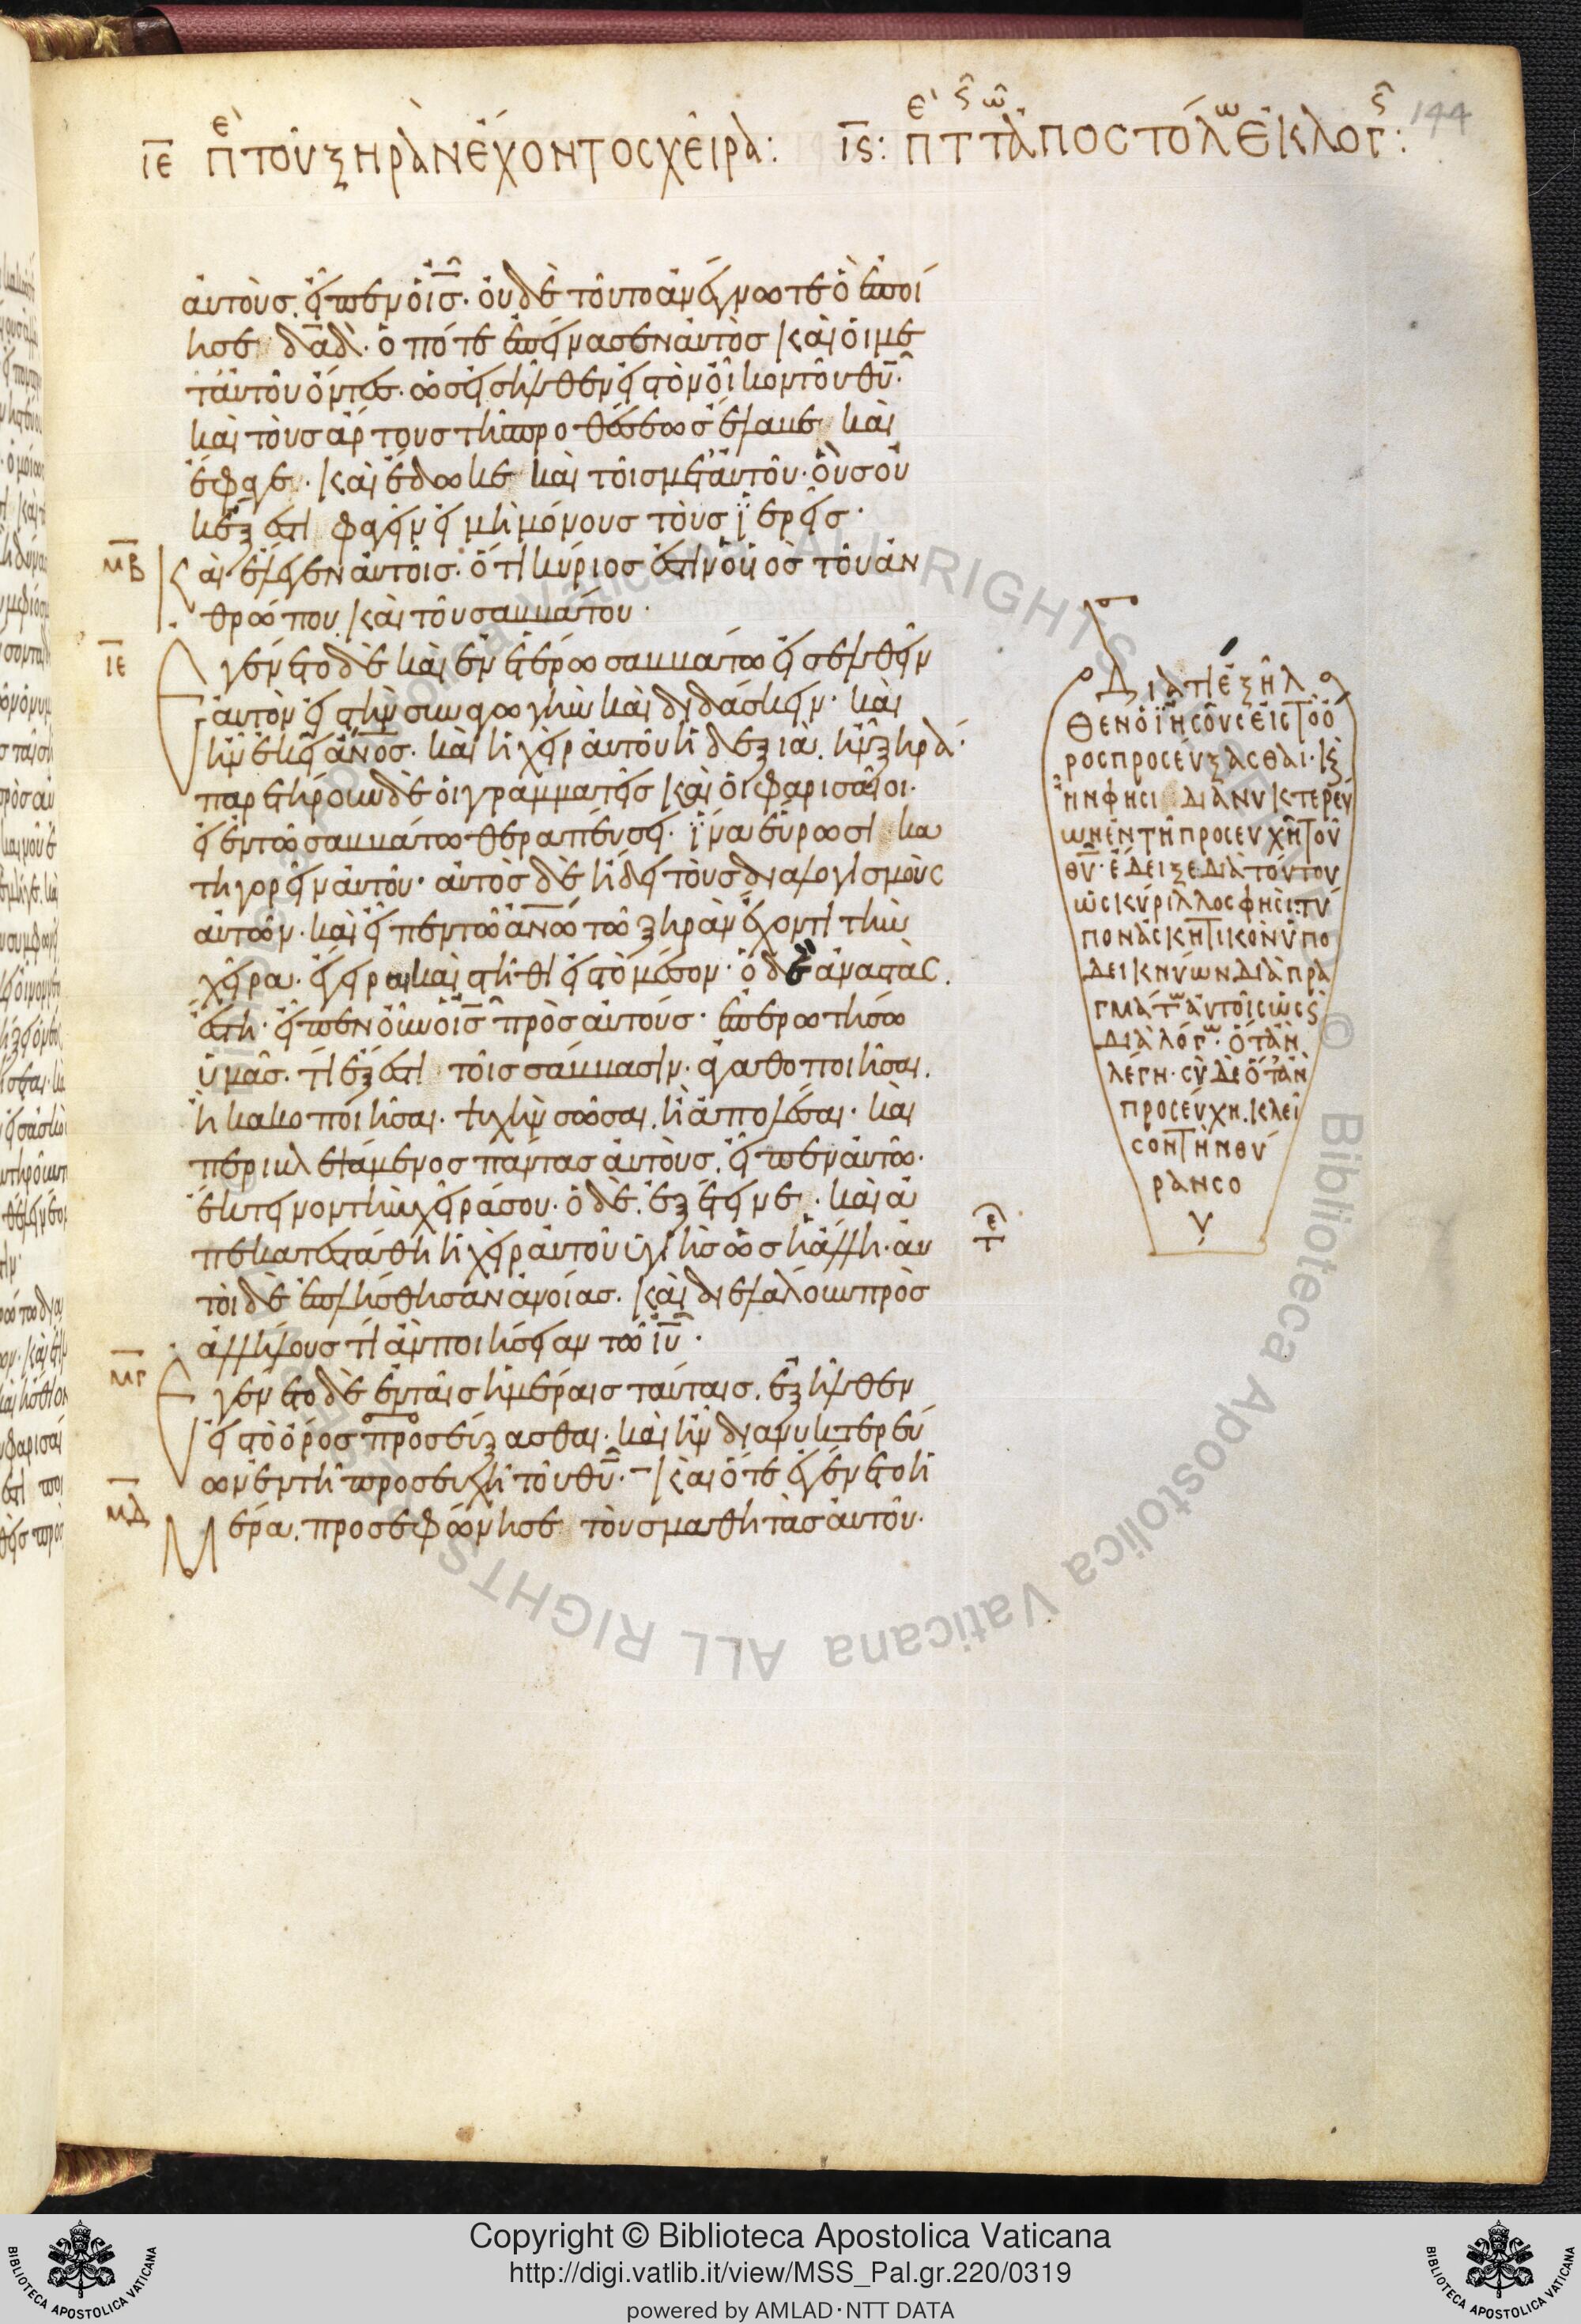 ιε περὶ τοῦ ξηρὰν ἔχοντος χεῖρα: ις: περὶ τῆς τῶν ἀποστόλων ἐκλογῆς:
144
αὐτοὺς. εἶπεν ὁ ις. οὐδὲ τοῦτο ἀνέγνωτε ὃ ἐποί
ησε δαδ. ὁπότε ἐπείνασεν αὐτὸς καὶ οἱ με
τ αὐτοῦ ὄντες. ὡς εἰσῆλθεν εἰς τὸν οἶκον τοῦ θυ.
καὶ τοὺς ἄρτους τῆς προθέσεως ἔλαβε καὶ
ἔφαγε. καὶ ἔδωκε καὶ τοῖς μετ αὐτοῦ. οὓς οὐ
κ ἔξεστι φαγεῖν εἰ μὴ μόνους τοὺς ἱερεῖς.
μβ καὶ ἔλεγεν αὐτοῖς. ὅτι κύριός ἐστιν ὁ υἱὸς τοῦ ἀν
θρώπου καὶ τοῦ σαββάτου.
ιε Ἐγένετο δὲ καὶ ἐν ἑτέρω σαββάτω εἰσελθεῖν
αὐτὸν εἰς τὴν συναγωγὴν καὶ διδάσκειν. καὶ
ἦν ἐκεῖ ανος. καὶ ἡ χεὶρ αὐτοῦ ἡ δεξιὰ. ἦν ξηρά.
παρετήρουν δὲ οἱ γραμματεῖς καὶ οἱ φαρισαῖοι.
εἰ ἐν τῶ σαββάτω θεραπεύσει. ἵνα εὕρωσι κα
τηγορεῖν αὐτοῦ. αὐτὸς δὲ ἤδει τοὺς διαλογισμοὺς
αὐτῶν. καὶ εἶπεν τῶ ανω τῶ ξηρὰν ἔχοντι τὴν
χεῖρα. ἔγειραι καὶ στῆθι εἰς τὸ μέσον. ὁ δὲ ἀναστὰς.
ἔστη. εἶπεν οὖν ὁ ις πρὸς αὐτούς. ἐπερωτήσω
ὑμᾶς. τί ἔξεστι τοῖς σάββασιν. ἀγαθοποιῆσαι.
ἢ κακοποιῆσαι. ψυχὴν σῶσαι. ἢ ἀπολέσαι. καὶ
περιβλεψάμενος πάντας αὐτοὺς. εἶπεν αὐτῶ.
ἔκτεινον τὴν χεῖρά σου. ὁ δὲ. ἐξέτεινε. καὶ ἀ
πεκατεστάθη ἡ χεὶρ αὐτοῦ ὑγιὴς ὡς ἡ ἄλλη. αὐ
τοὶ δὲ ἐπλήσθησαν ἀνοίας. καὶ διελάλουν πρὸς
ἀλλήλους τί ἂν ποιήσειαν τῶ ιυ.
μγ Ἐγένετο δὲ ἐν ταῖς ἡμέραις ταύταις. ἐξῆλθεν
εἰς τὸ ὄρος προσεύξασθαι. καὶ ἦν διανυκτερεύ
ων ἐν τῆ προσευχῆ τοῦ θυ. καὶ ὅτε ἐγένετο ἡ
μδ μέρα. προσεφώνησε τοὺς μαθητὰς αὐτοῦ.
Διατί ἐξῆλ
θεν ὁ ἰησοῦς εἰς τὸ ὄ
ρος προσεύξασθαι. κὲ
ἦν φησι διανυκτερεύ
ων ἐν τῆ προσευχῆ τοῦ
θυ. ἔδειξε διὰ τούτου
ὡς κύριλλος φησι. τύ
πον ἀσκητικὸν ὑπο
δεικνύων διὰ πρα
γμάτων αὐτοῖς ὡς κ
διὰ λόγων. ὅταν
λέγη. σὺ δὲ ὅταν
προσεύχη. κλεῖ
σον τὴν θύ
ραν σο
υ